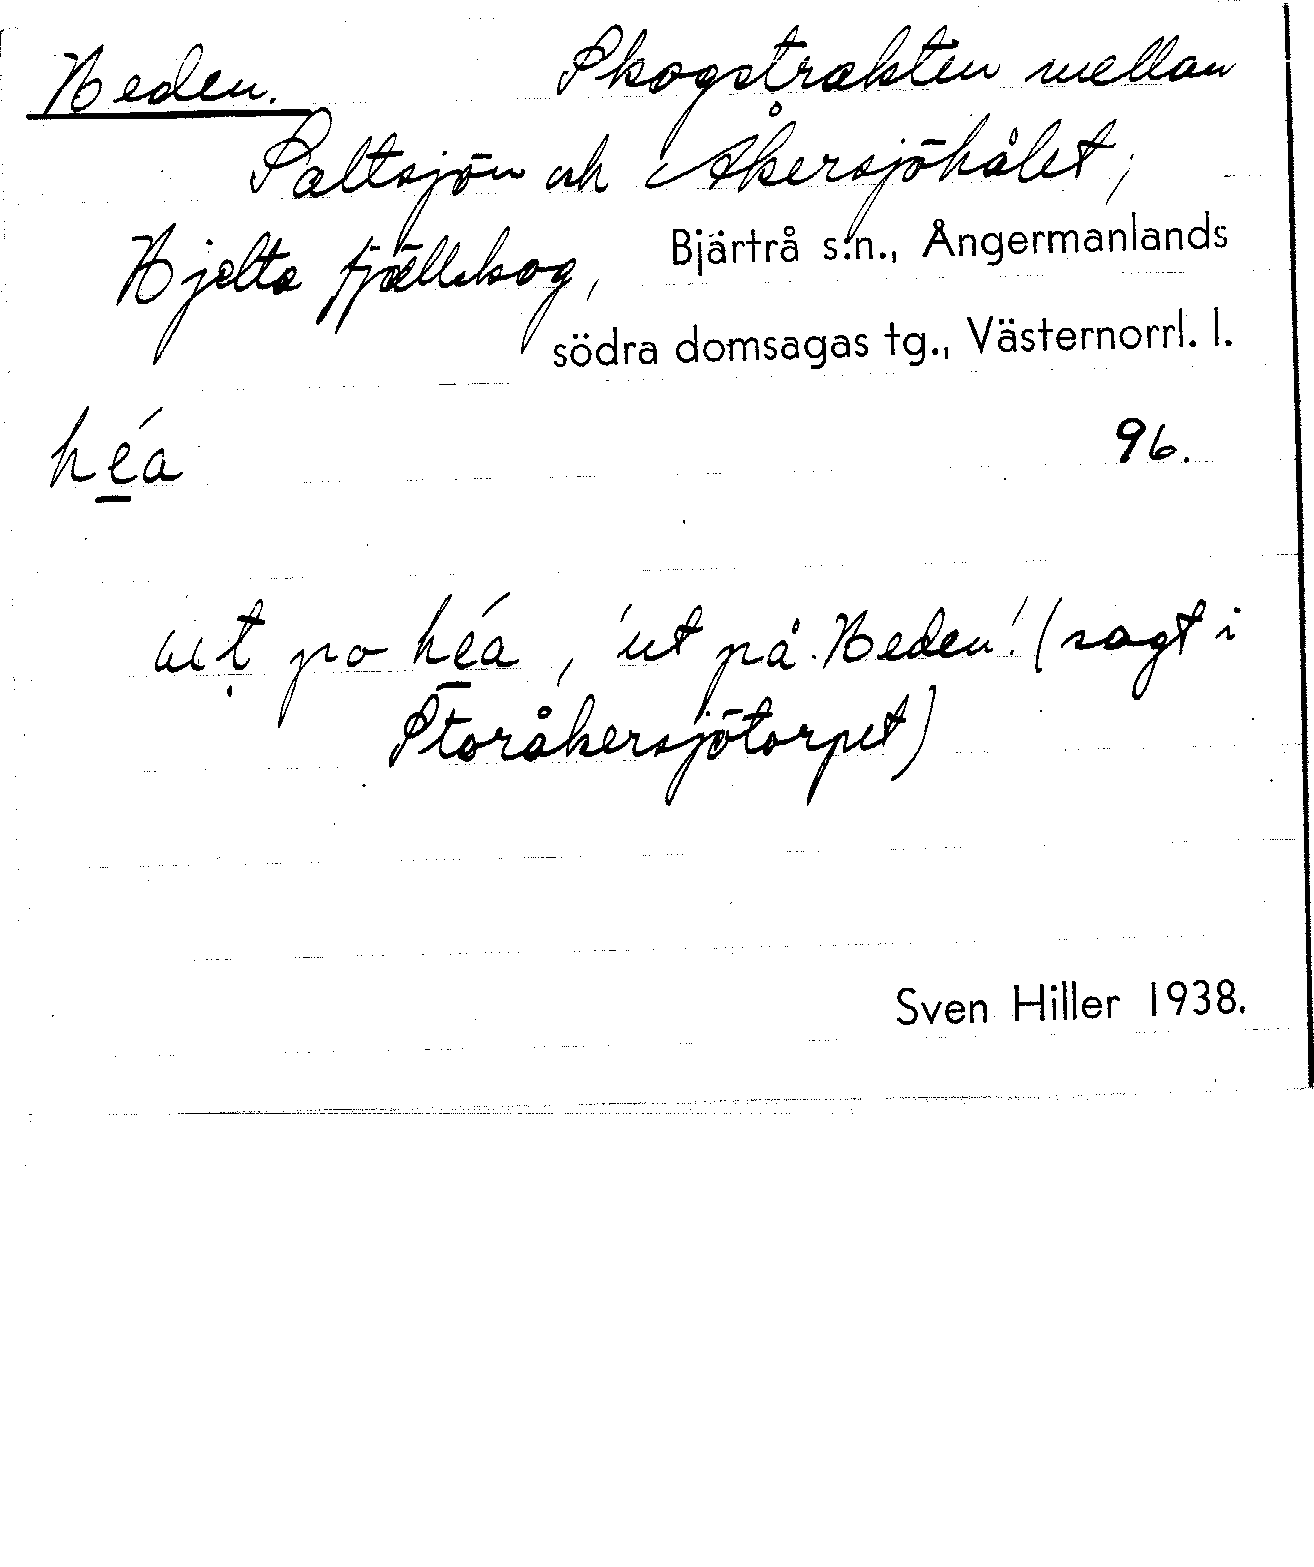 Heden. Skogstrakten mellan
Saltsjön och Åkersjöhålet,
Hjelta fjällskog, Bjärtrå s:n., Ångermanlands
södra domsagas tg., Västernorrl. l.
héa 96.
ut po héa, 'ut på Heden'. (sagt i
Storåkersjötorpet)
Sven Hiller 1938.